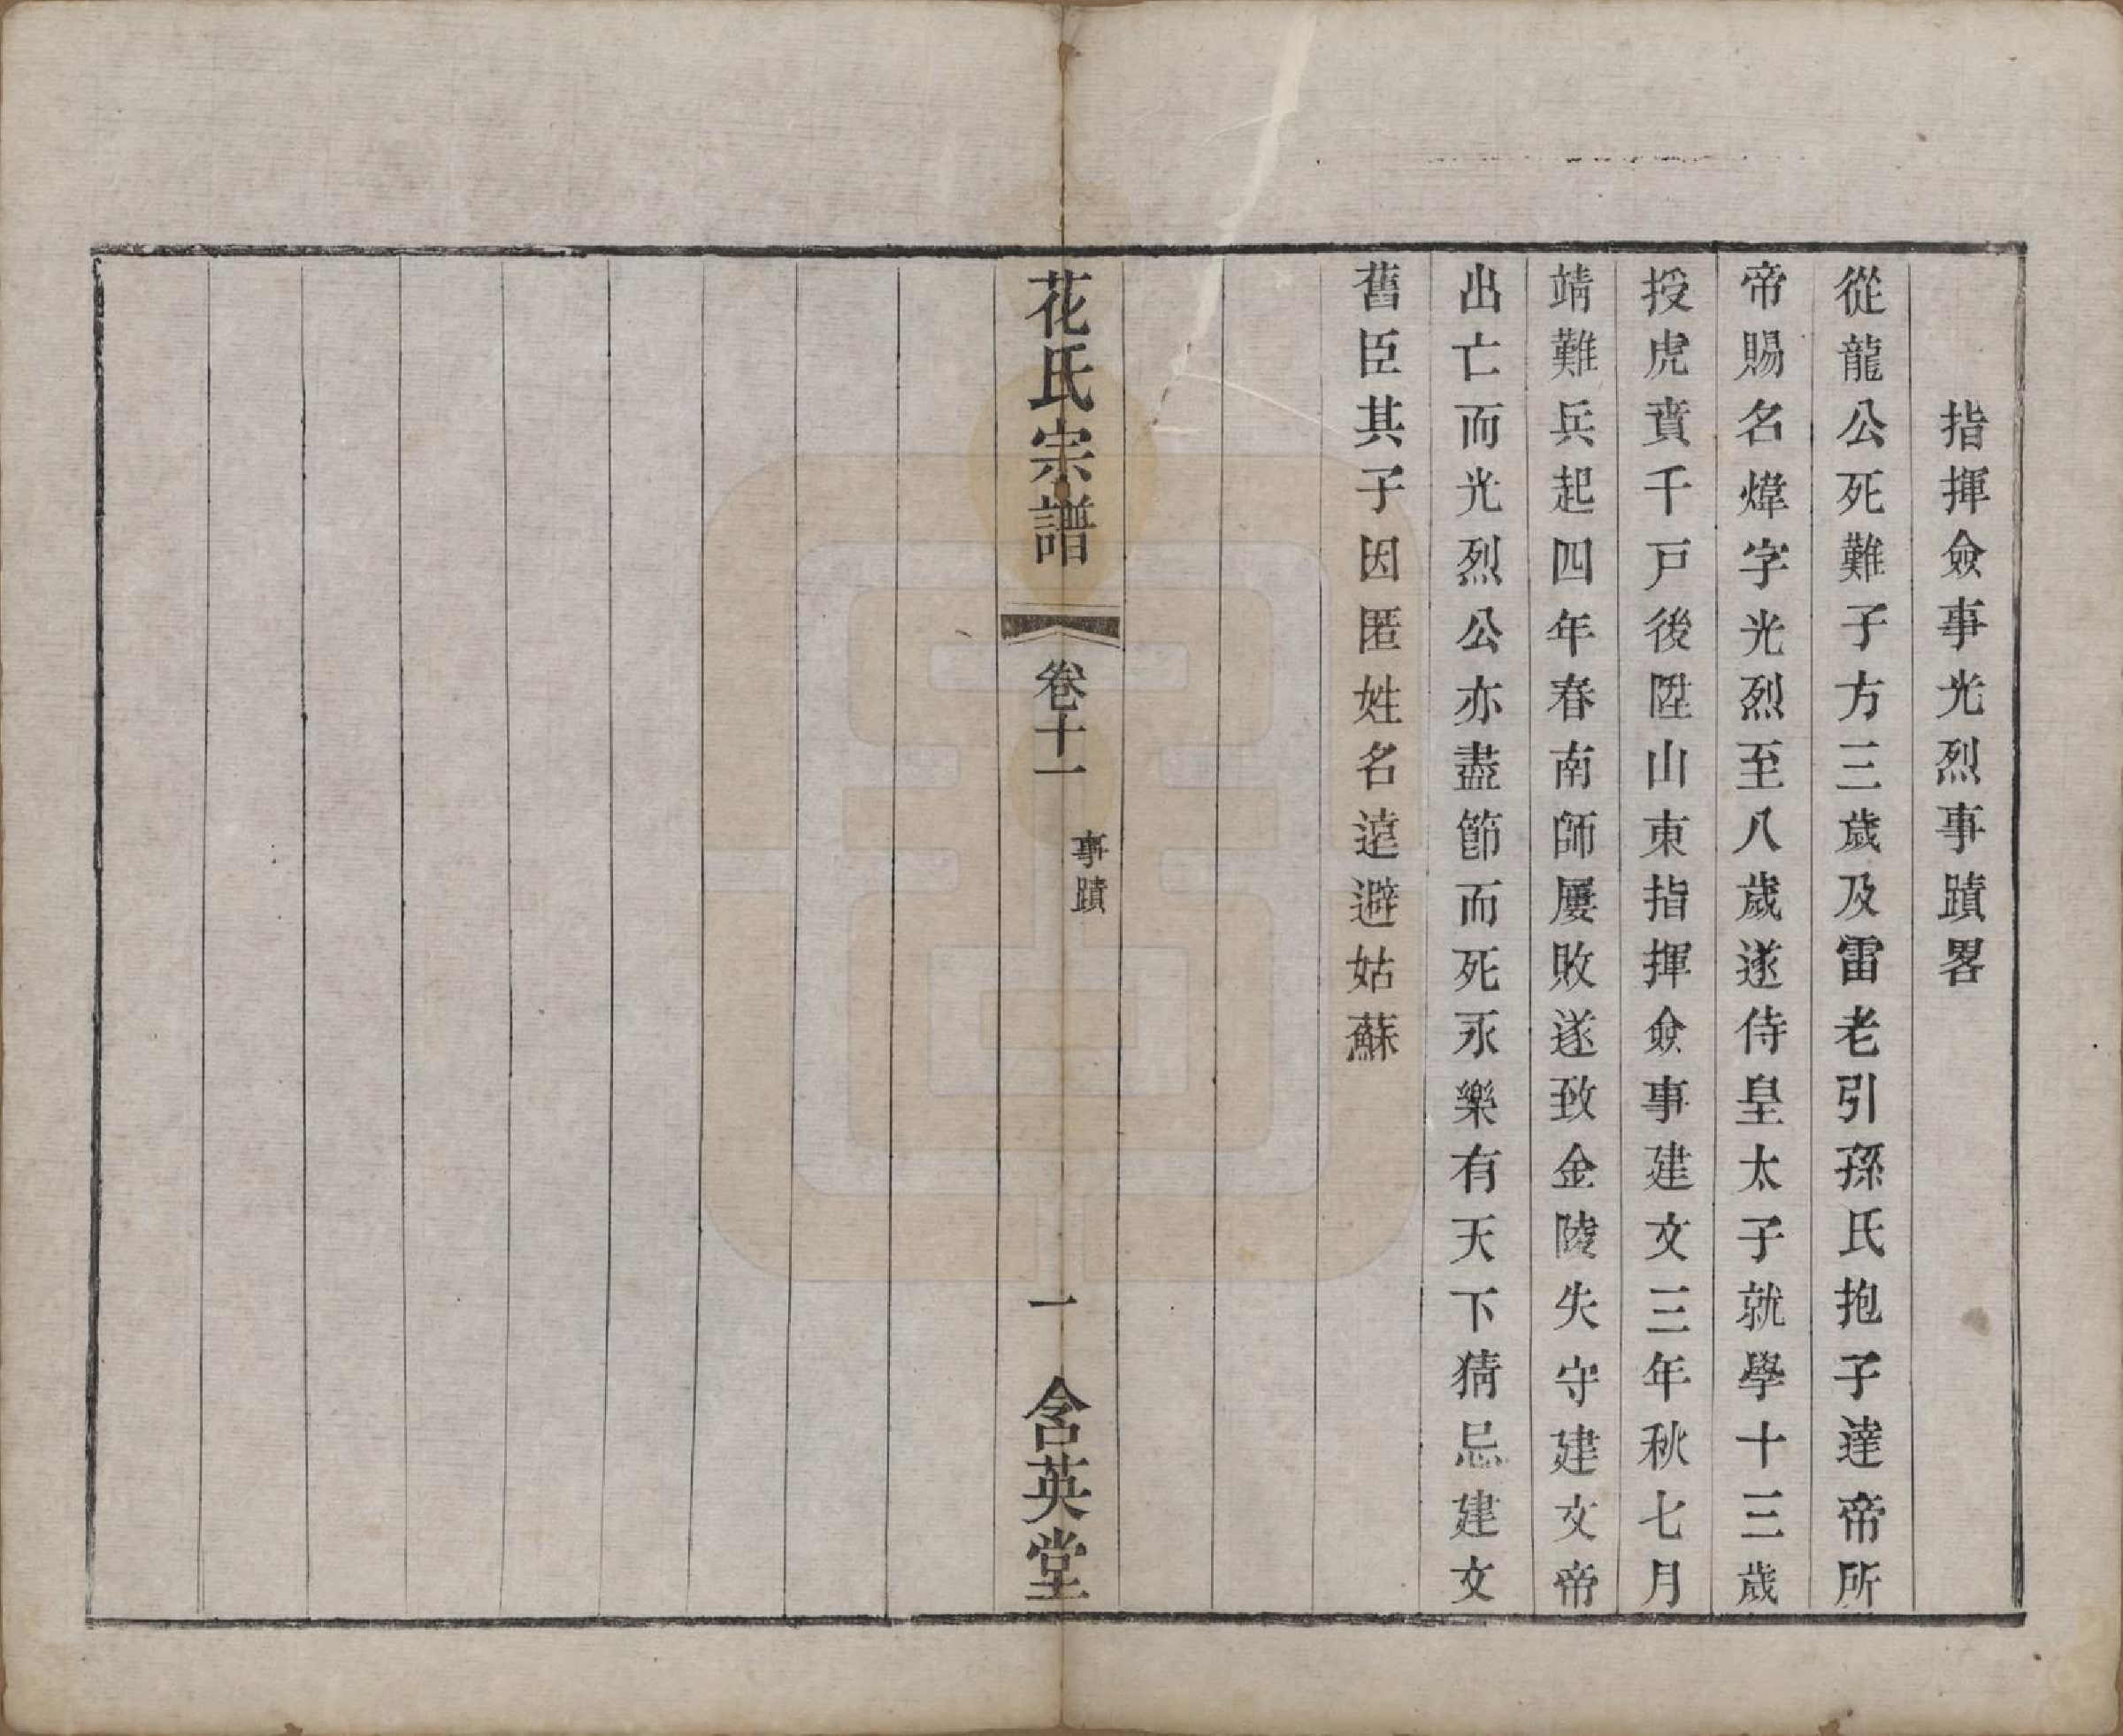 指揮僉事光烈事蹟畧
從龍公死難子方三歲及雷老引孫氏抱子達帝所
帝賜名煒字光烈至八歲遂侍皇太子就學十三歲
授虎賁千戸後陞山東指揮僉事建文三年秋七月
靖難兵起四年春南師屢敗遂致金陵失守建文帝
出亡而光烈公亦盡節而死永樂有天下猜忌建文
舊臣其子因匿姓名遠避姑蘇
花氏宗譜
卷十一
事蹟
一
含英堂